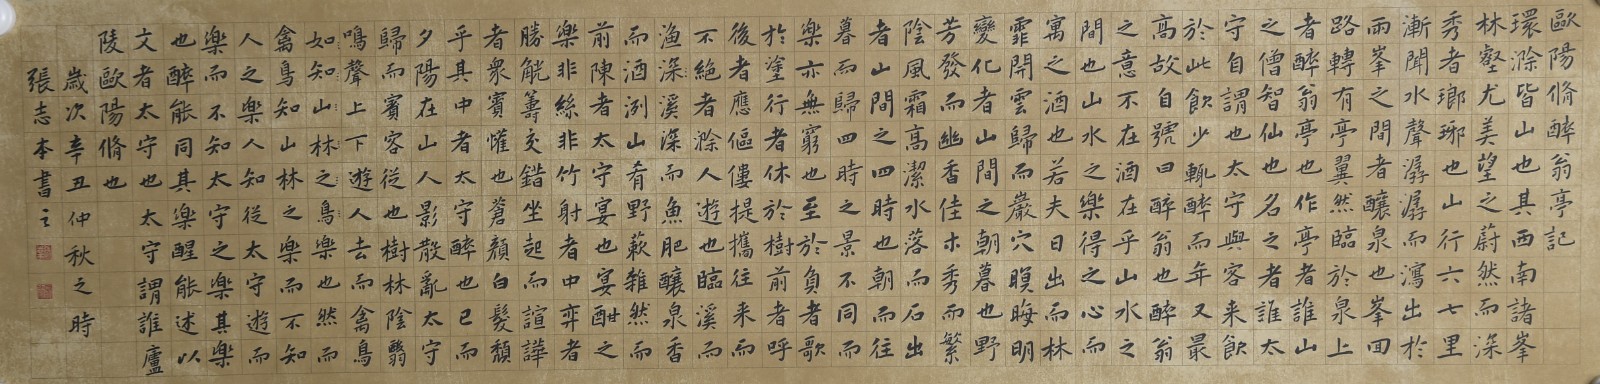 歐陽脩醉翁亭記
環滁皆山也其西南諸峯
林壑尤美望之蔚然而深
秀者瑯琊也山行六七里
漸聞水聲潺潺而瀉出於
兩峯之間者釀泉也峯回
路轉有亭翼然臨於泉上
者醉翁亭也作亭者誰山
之僧智仙也名之者誰太
守自謂也太守與客来飲
於此飲少輒醉而年又最
高故自號曰醉翁也醉翁
之意不在酒在乎山水之
間也山水之樂得之心而
寓之酒也若夫日出而林
霏開雲歸而巖穴暝晦明
變化者山間之朝暮也野
芳發而幽香佳木秀而繁
陰風霜高潔水落而石出
者山間之四時也朝而往
暮而歸四時之景不同而
樂亦無窮也至於負者歌
於塗行者休於樹前者呼
後者應傴僂提攜往来而
不絕者滁人遊也臨溪而
漁深溪深而魚肥釀泉香
而酒洌山肴野蔌雜然而
前陳者太守宴也宴酣之
樂非絲非竹射者中弈者
勝觥籌交錯坐起而諠譁
者衆賓懽也蒼顏白髮頹
乎其中者太守醉也已而
夕陽在山人影散亂太守
歸而賓客從也樹林陰翳
鳴聲上下遊人去而禽鳥
如知山林之鳥樂也然而
禽鳥知山林之樂而不知
人之樂人知從太守遊而
樂而不知太守之樂其樂
也醉能同其樂醒能述以
文者太守也太守謂誰廬
陵歐陽脩也
歲次辛丑仲秋之時
張志本書之